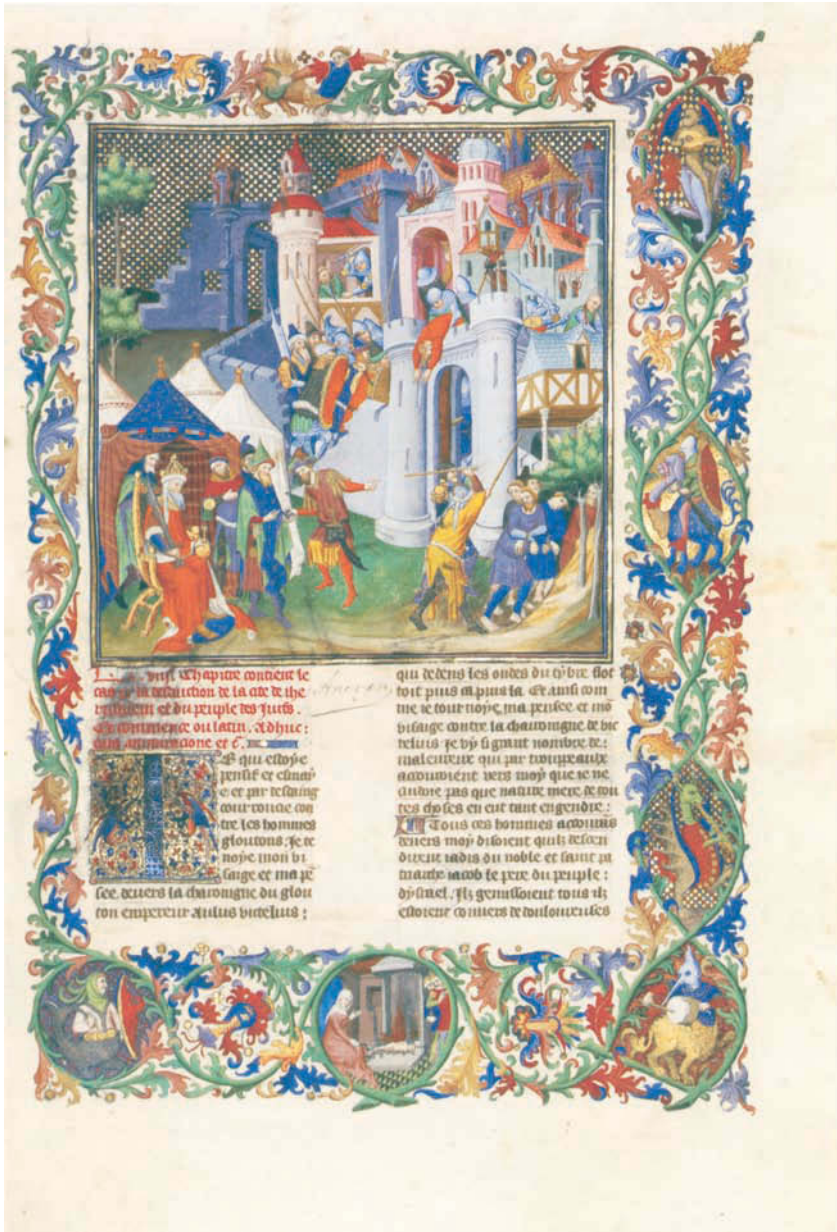 viii Chapitre contient le
la destruction de la cite de ihe
rusalem et du peuple des Juifs.
Et commence ou latin. Adhuc:
et c.
E qui estoye
pensif et
e et par desdaing
courroucie con
tre les hommes
gloutons Je te
noye mon bi
saige et ma pe
see deuers la charoingne du glou
ton empereur Aulus vitelius:
qui dedens les ondes du tybre flot
toit puis ca puis la. Et ainsi com
me Je tournoye, ma pensee et mo
visaige contre la charoingne de vic
telius Je vy si grant nombre de:
maleureux qui par troupeaulx
acouroient vers moy que Je ne
cuidoie pas que nature mere de tou
tes choses en eut tant engendre:
Tous ces hommes
deuers moy disoient quilz descen
dirent iadis du noble et saint pa
triarche iacob le pere du peuple:
dysrael. Ilz gemissoient tous ilz
estoient couuers de douloureuses